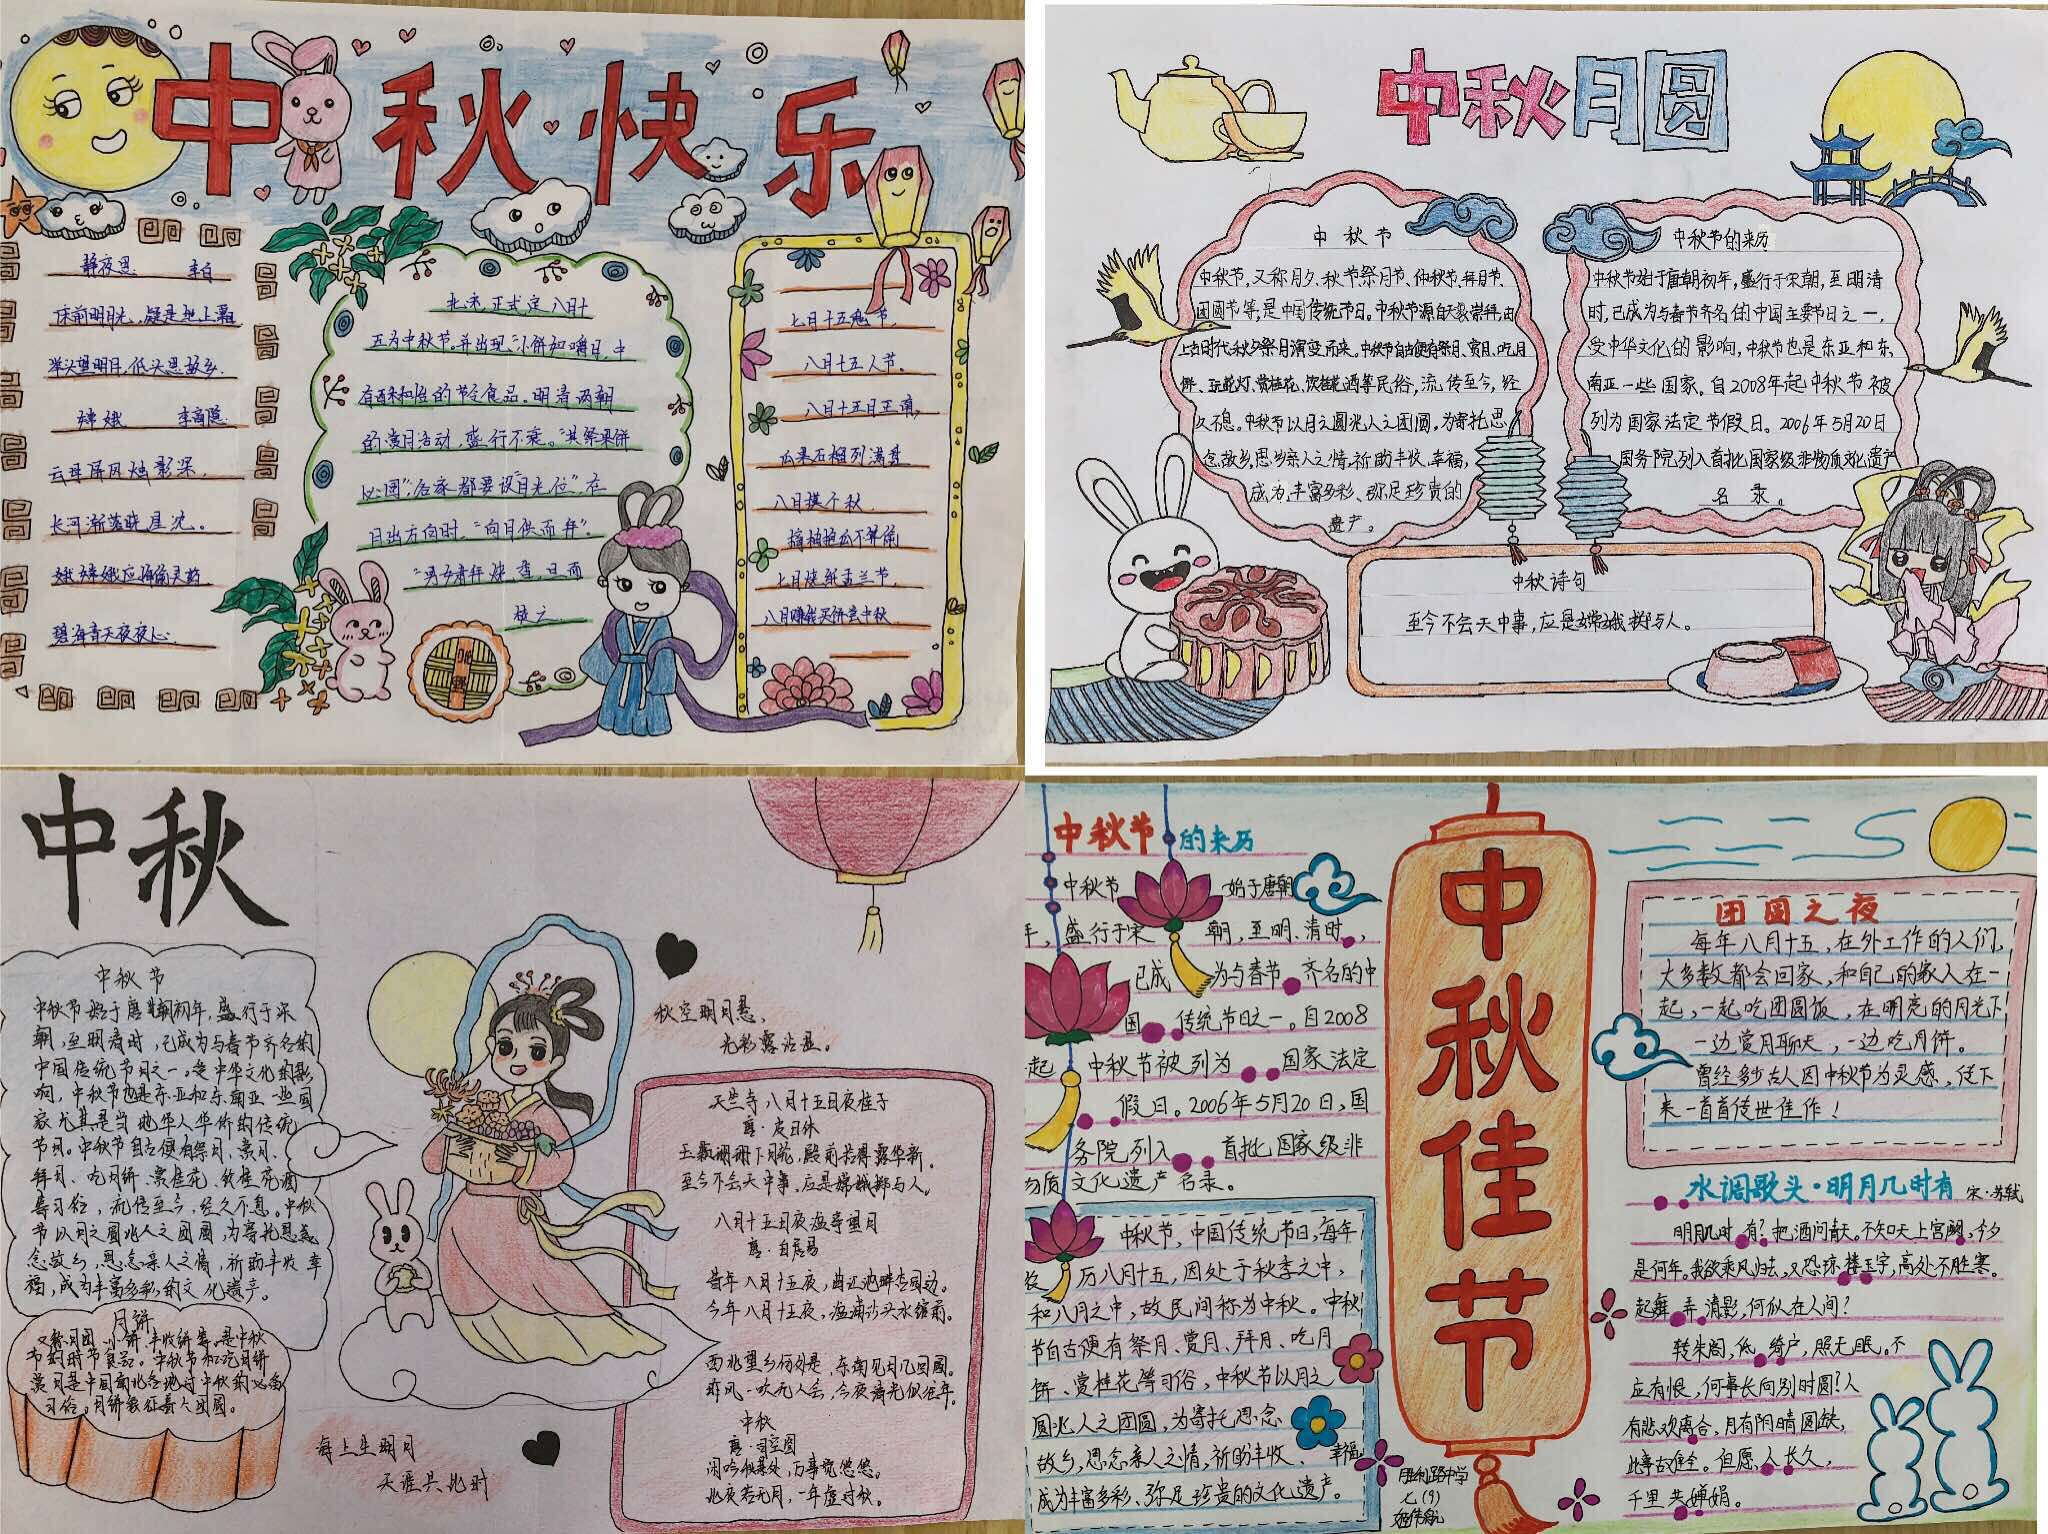 中秋快乐
静夜思 李白
床前明月光,疑是地上霜
举头望明月,低头思故乡.
嫦娥 李商隐
云母屏风烛影深,
长河渐落晓星沈。
嫦娥应悔偷灵药
碧海青天夜夜心
北宋,正式定八月十
五为中秋节.并出现"小饼如嚼月,中
有酥和饴"的节令食品.明清两朝
的赏月活动,盛行不衰。"其祭果饼
必圆";各家都要设"月光位",在
月出方向时,"向月供而拜".
"男女肃拜烧香,旦而
七月十五鬼节,
八月十五人节。
八月十五月正南,
瓜果石榴列满盘
八月摸个秋,
七月烧纸盂兰节,
八月赚钱买饼会中秋.
中秋月圆
中秋节
中秋节,又称月夕、秋节祭月节、仲秋节、拜月节、
团圆节等,是中国传统节日。中秋节源自天象崇拜,由
上古时代秋夕祭月演变而来。中秋节自古便有祭月、赏月、吃月
饼、玩花灯、赏桂花、饮桂花酒等民俗,流传至今,经
久不息。中秋节以月之圆兆人之团圆,为寄托思
念故乡,思乡亲人之情,祈盼丰收、幸福,
成为丰富多彩、弥足珍贵的
遗产。
中秋节的来历
中秋节始于唐朝初年,盛行于宋朝,至明清
时,已成为与春节齐名的中国主要节日之一,
受中华文化的影响,中秋节也是东亚和东
南亚一些国家。自2008年起中秋节被
列为国家法定节假日。2006年5月20日
国务院列入首批国家级非物质文化遗产
名录。
中秋诗句
至今不会天中事,应是嫦娥掷与人。
中秋
中秋节
中秋节始于唐朝初年,盛行于宋
朝,至明清时,已成为与春节齐名的
中国传统节日之一。受中华文化的影
响,中秋节也是东亚和东南亚一些国
家尤其是当地华人华侨的传统
节日。中秋节自古便有祭月、赏月、
拜月、吃月饼、赏桂花、饮桂花酒
等习俗,流传至今,经久不息。中秋
节以月之圆兆人之团圆,为寄托思
念故乡,思念亲人之情,祈盼丰收幸
福,成为丰富多彩的文化遗产。
月饼
又称月团、小饼、丰收饼等,是中秋
节的时节食品。中秋节和吃月饼
赏月是中国南北各地过中秋的必备
习俗。月饼象征着人团圆。
海上生明月
天涯共此时
秋空明月悬,
光彩露沾湿。
天竺寺八月十五日夜桂子
唐·皮日休
玉颗珊珊下月轮,殿前拾得露华新。
至今不会天中事,应是嫦娥掷与人。
八月十五日夜湓亭望月
唐·白居易
昔年八月十五夜,曲江池畔杏园边。
今年八月十五夜,湓浦沙头水馆前。
西北望乡何处是,东南见月几回圆。
昨风一吹无人会,今夜清光似往年。
中秋
唐·司空图
闲吟秋景外,万事觉悠悠。
此夜若无月,一年虚过秋。
中秋节的来历
中秋节始于唐朝
年,盛行于宋朝,至明、清时,
已成为与春节齐名的中
国传统节日之一。自2008
起中秋节被列为国家法定
假日。2006年5月20日,国
务院列入首批国家级非
物质文化遗产名录。
中秋节,中国传统节日,每年
农历八月十五,因处于秋季之中,
和八月之中,故民间称为中秋。中秋
节自古便有祭月、赏月、拜月、吃月
饼、赏桂花等习俗,中秋节以月之
圆兆人之团圆,为寄托思念
故乡,思念亲人之情,祈盼丰收、幸福,
成为丰富多彩、弥足珍贵的文化遗产。
中秋佳节
胜利路中学
七(9)
团圆之夜
每年八月十五,在外工作的人们,
大多数都会回家,和自己的家人在一
起,一起吃团圆饭,在明亮的月光下
一边赏月聊天,一边吃月饼。
曾经多少古人因中秋节为灵感,传下
来一首首传世佳作!
水调歌头·明月几时有 宋·苏轼
明月几时有?把酒问青天。不知天上宫阙,今夕
是何年。我欲乘风归去,又恐琼楼玉宇,高处不胜寒。
起舞弄清影,何似在人间?
转朱阁,低绮户,照无眠。不
应有恨,何事长向别时圆?人
有悲欢离合,月有阴晴圆缺,
此事古难全。但愿人长久,
千里共婵娟。